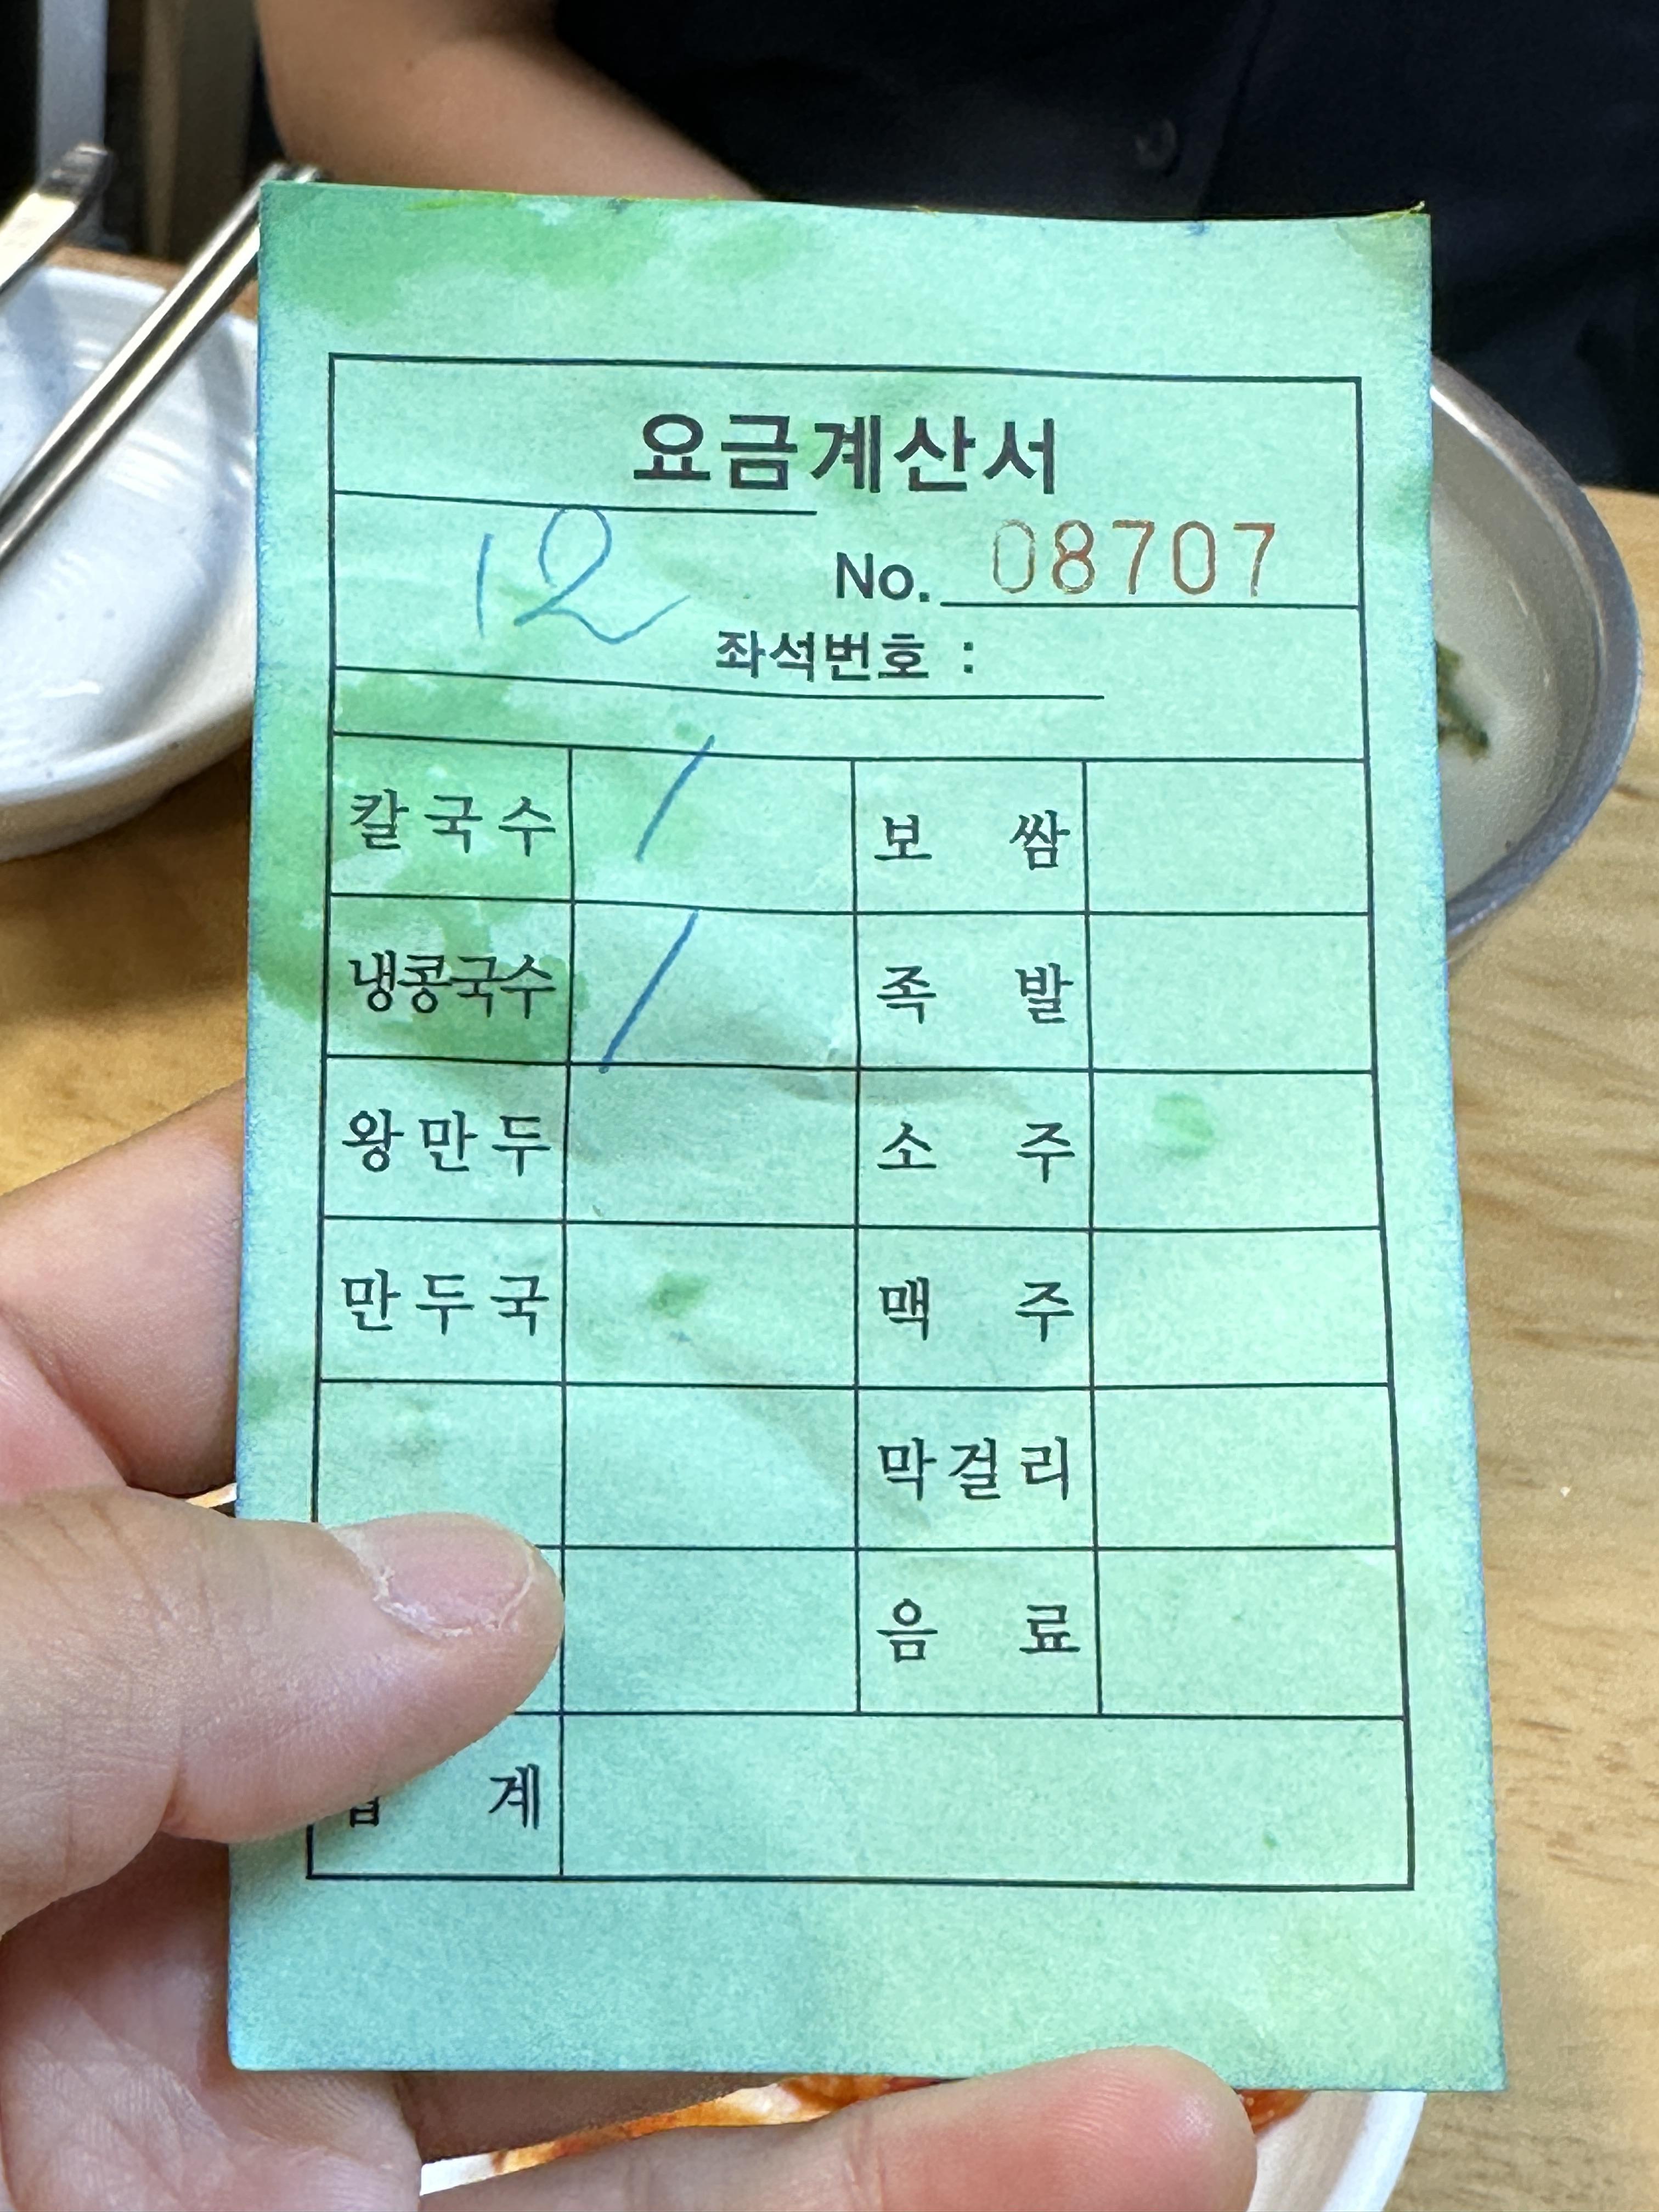 요금계산서
12
No. 08707
좌석번호 :
칼국수 / 보쌈
냉콩국수 / 족발
왕만두 소주
만두국 맥주
막걸리
음료
계